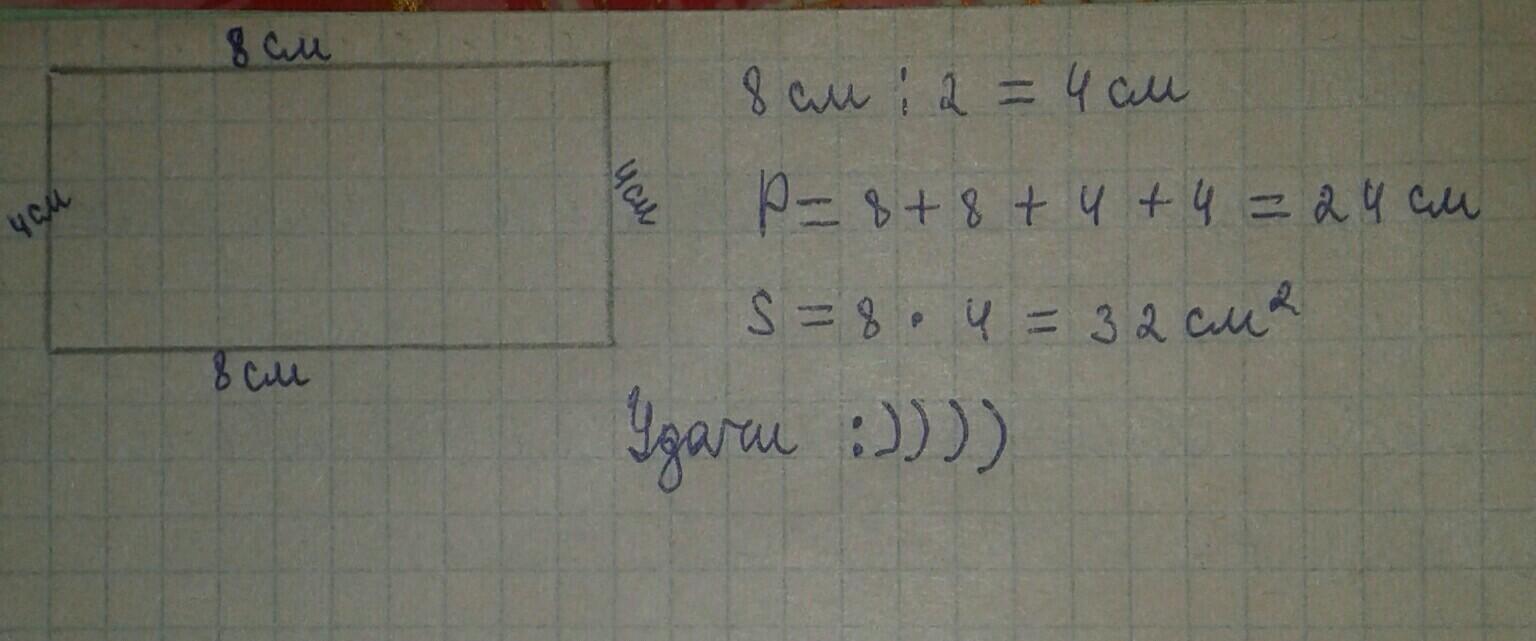 8 см
8 см : 2 = 4 см
4 см
4 см
P = 8 + 8 + 4 + 4 = 24 см
S = 8 · 4 = 32 см²
8 см
Удачи :))))